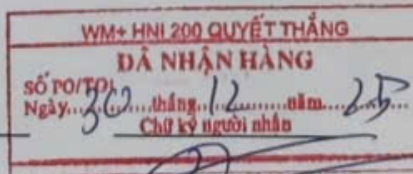 WM+ HNI 200 QUYẾT THẮNG
ĐÃ NHẬN HÀNG
SỐ PO/TO:
Ngày....30......tháng...12.......năm....25
Chữ ký người nhận